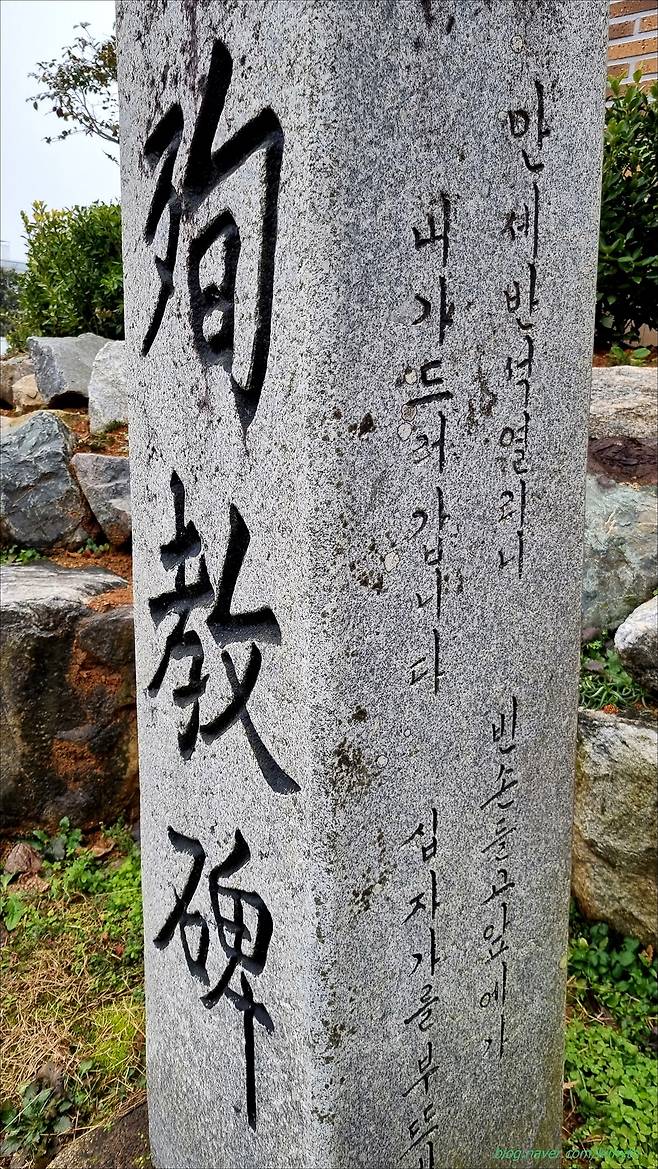 殉教碑
만세반석열리니 빈손들고앞에가
내가드러갑니다 십자가를부뜨
blog.naver.com/